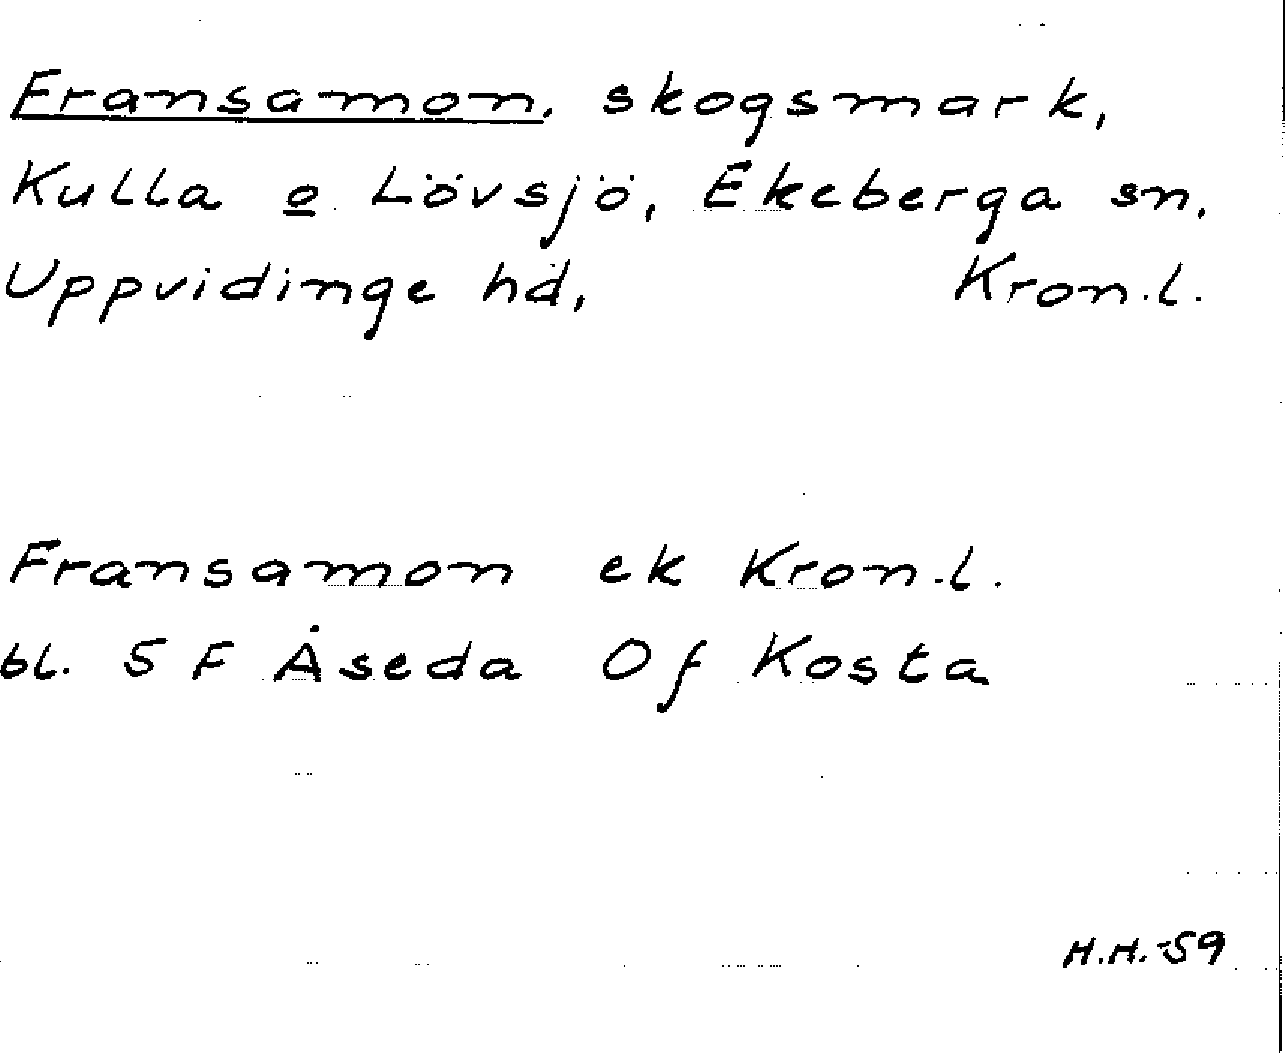 Fransamon, skogsmark,
Kulla o Lövsjö, Ekeberga sn,
Uppvidinge hd, Kron.l.
Fransamon ek Kron.l.
bl. 5 F Åseda Of Kosta
H.H.-59